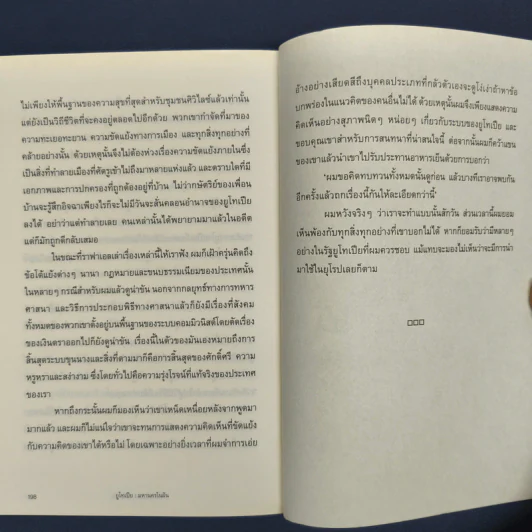 ไม่เพียงให้พื้นฐานของความสุขที่สุดสำหรับชุมชนศิวิไลซ์แล้วเท่านั้น
แต่ยังเป็นวิถีชีวิตที่จะคงอยู่ตลอดไปอีกด้วย พวกเขากำจัดที่มาของ
ความทะเยอทะยาน ความขัดแย้งทางการเมือง และทุกสิ่งทุกอย่างที่
คล้ายอย่างนั้น ด้วยเหตุนั้นจึงไม่ต้องห่วงเรื่องความขัดแย้งภายในซึ่ง
เป็นสิ่งที่ทำลายเมืองที่ศัตรูเข้าไม่ถึงมาหลายแห่งแล้ว และตราบใดที่มี
เอกภาพและการปกครองที่ถูกต้องอยู่ที่บ้าน ไม่ว่ากษัตริย์ของเพื่อน
บ้านจะรู้สึกอิจฉาเพียงไรก็จะไม่มีวันจะสั่นคลอนอำนาจของยูโทเปีย
ลงได้ อย่าว่าแต่ทำลายเลย คนเหล่านั้นได้พยายามมาแล้วในอดีต
แต่ก็มักถูกตีกลับเสมอ
ในขณะที่ราฟาเอลเล่าเรื่องเหล่านี้ให้เราฟัง ผมก็เฝ้าครุ่นคิดถึง
ข้อโต้แย้งต่างๆ นานา กฎหมายและขนบธรรมเนียมของประเทศนั้น
ในหลายๆ กรณีสำหรับผมแล้วดูน่าขัน นอกจากกลยุทธ์ทางการทหาร
ศาสนา และวิธีการประกอบพิธีทางศาสนาแล้วก็ยังมีเรื่องที่สังคม
ทั้งหมดของพวกเขาตั้งอยู่บนพื้นฐานของระบบคอมมิวนิสต์โดยตัดเรื่อง
ของเงินตราออกไปก็ยังดูน่าขัน เรื่องนี้ในตัวของมันเองหมายถึงการ
สิ้นสุดระบบขุนนางและสิ่งที่ตามมาก็คือการสิ้นสุดของศักดิ์ศรี ความ
หรูหราและสง่างาม ซึ่งโดยทั่วไปคือความรุ่งโรจน์ที่แท้จริงของประเทศ
ของเรา
หากถึงกระนั้นผมก็มองเห็นว่าเขาเหน็ดเหนื่อยหลังจากพูดมา
มากแล้ว และผมก็ไม่แน่ใจว่าเขาจะทนการแสดงความคิดเห็นที่ขัดแย้ง
กับความคิดของเขาได้หรือไม่ โดยเฉพาะอย่างยิ่งเวลาที่ผมจำการเอ่ย
198 | ยูโทเปีย : มหานครในฝัน
อ้างอย่างเสียดสีถึงบุคคลประเภทที่กลัวตัวเองจะดูโง่เง่าถ้าหาข้อ
บกพร่องในแนวคิดของคนอื่นไม่ได้ ด้วยเหตุนั้นผมจึงเพียงแสดงความ
คิดเห็นอย่างสุภาพนิดๆ หน่อยๆ เกี่ยวกับระบบของยูโทเปีย และ
ขอบคุณเขาสำหรับการสนทนาที่น่าสนใจนี้ ต่อจากนั้นผมก็คว้าแขน
ของเขาแล้วนำเขาไปรับประทานอาหารเย็นด้วยการบอกว่า
'ผมขอคิดทบทวนทั้งหมดนั้นดูก่อน แล้วบางทีเราอาจพบกัน
อีกครั้งแล้วถกเรื่องนี้กันให้ละเอียดกว่านี้'
ผมหวังจริงๆ ว่าเราจะทำแบบนั้นสักวัน ส่วนเวลานี้ผมยอม
เห็นพ้องกับทุกสิ่งทุกอย่างที่เขาบอกไม่ได้ หากก็ยอมรับว่ามีหลายๆ
อย่างในรัฐยูโทเปียที่ผมควรชอบ แม้แทบจะมองไม่เห็นว่าจะมีการนำ
มาใช้ในยุโรปเลยก็ตาม